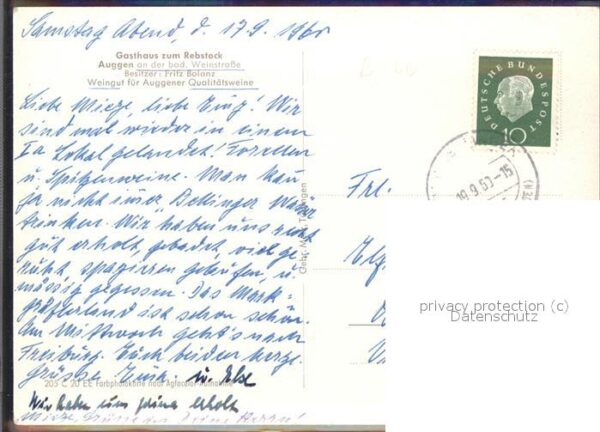 Samstag Abend, d. 17.9. 1960
Gasthaus zum Rebstock
Auggen an der bad. Weinstraße
Besitzer: Fritz Bolanz
Weingut für Auggener Qualitätsweine
Liebe Mieze, liebe! Wir
sind mal wieder in einem
Ia Lokal gelandet! Forellen
u. Spitzenweine. Man kann
ja nicht immer Dettinger
trinken. Wir haben uns recht
gut erholt, gebadet, viel ge-
ruht, spazieren gelaufen, u.
mässig gegessen. Das Mark-
gräflerland ist schon schön.
Am Mittwoch geht's nach
Freiburg. Euch beiden herzl.
Grüsse
u. Else
205 C 20 EE Farbphotokarte nach Agfacolor-Aufnahme
Wir haben uns prima erholt
Gebr. Metz, Tübingen
DEUTSCHE BUNDESPOST
10
19.9.60-15
Frl.
privacy protection (c)
Datenschutz